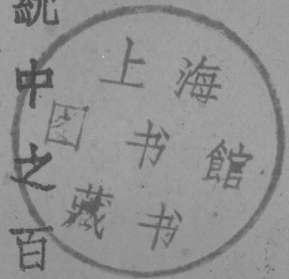 統中之百
上海
图书館
藏书